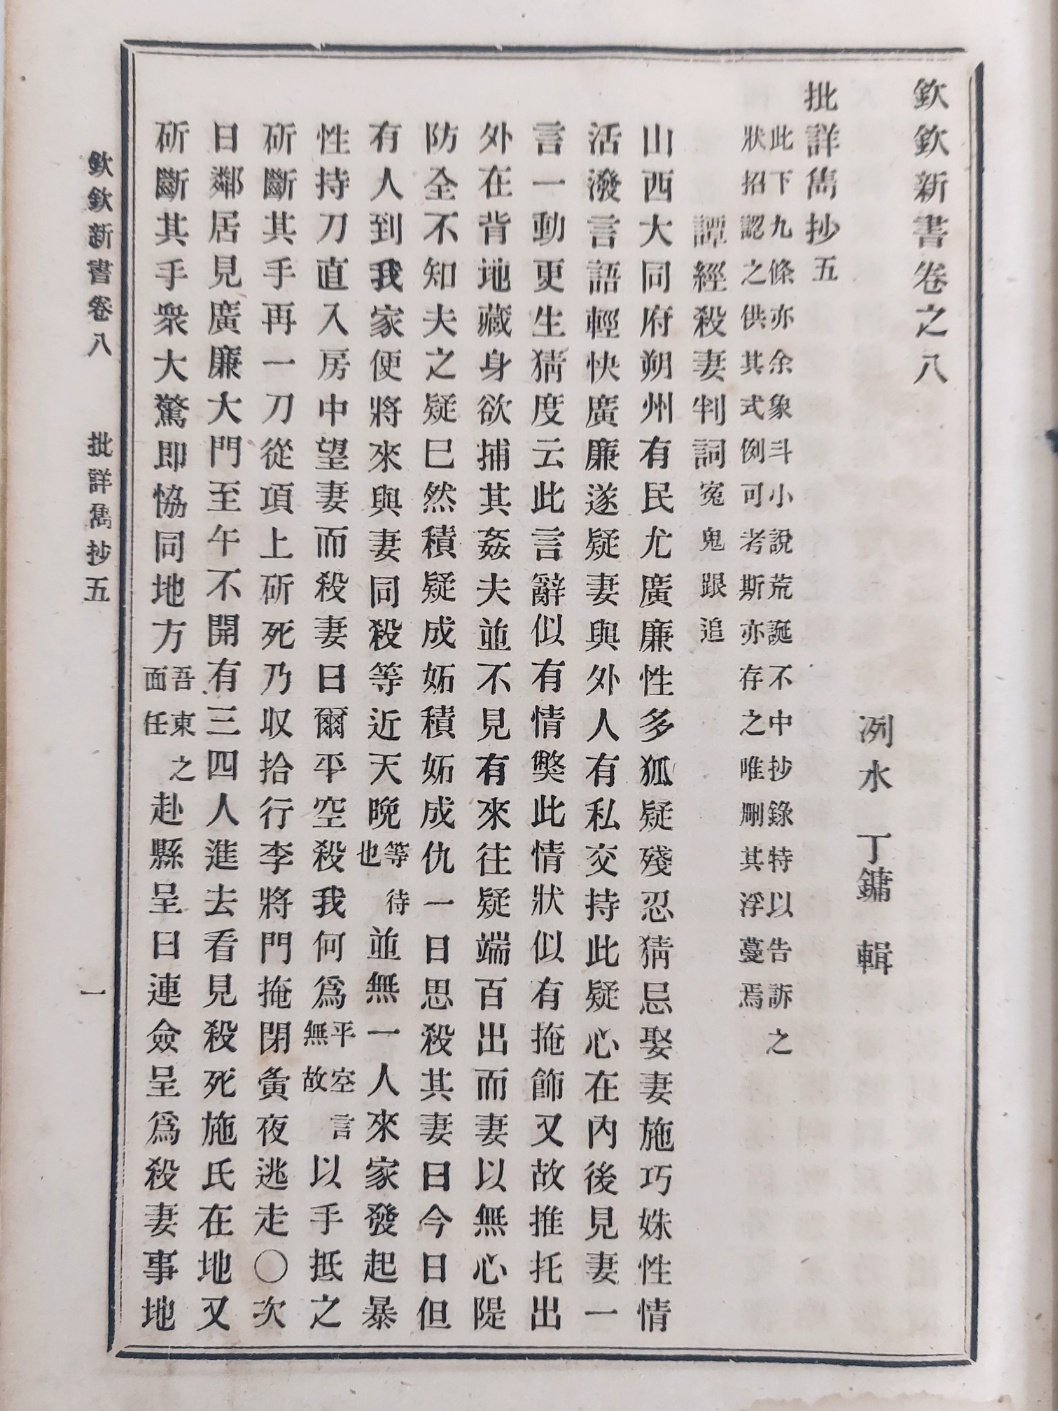 欽欽新書卷之八
洌水 丁鏞 輯
批詳雋抄五
此下九條亦余象斗小說荒誕不中抄錄特以告訴之
狀招認之供其式例可考斯亦存之唯刪其浮蔓焉
譚經殺妻判詞冤鬼跟追
山西大同府朔州有民尤廣廉性多狐疑殘忍猜忌娶妻施巧姝性情
活潑言語輕快廣廉遂疑妻與外人有私交持此疑心在內後見妻一
言一動更生猜度云此言辭似有情獘此情狀似有掩飾又故推托出
外在背地藏身欲捕其姦夫並不見有來往疑端百出而妻以無心隄
防全不知夫之疑巳然積疑成妬積妬成仇一日思殺其妻曰今日但
有人到我家便將來與妻同殺等近天晚等待也並無一人來家發起暴
性持刀直入房中望妻而殺妻曰爾平空殺我何爲平空言無故以手抵之
斫斷其手再一刀從項上斫死乃収拾行李將門掩閉夤夜逃走〇次
日鄰居見廣廉大門至午不開有三四人進去看見殺死施氏在地又
斫斷其手衆大驚即恊同地方吾東之面任赴縣呈曰連僉呈爲殺妻事地
欽欽新書卷八 批詳雋抄五 一